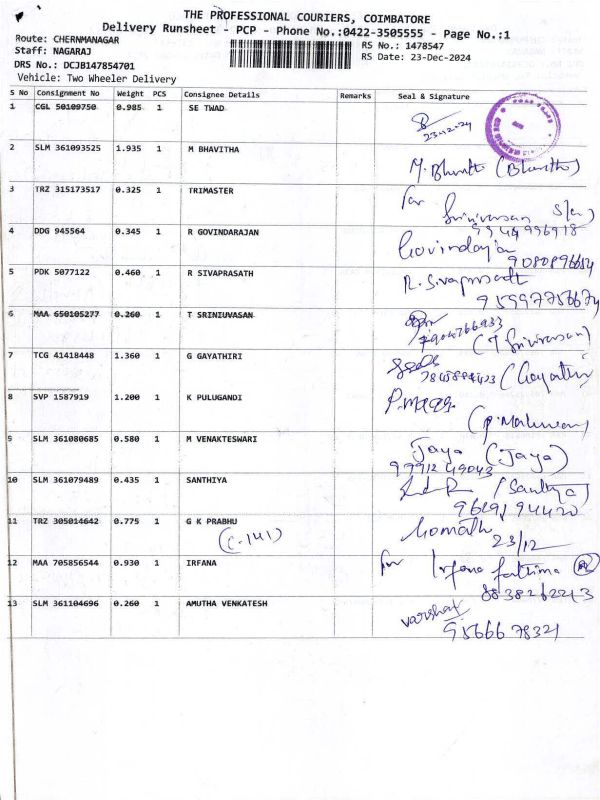 THE PROFESSIONAL COURIERS, COIMBATORE
Delivery Runsheet - PCP - Phone No.:0422-3505555 - Page No.:1
Route: CHERNMANAGAR RS No.: 1478547
Staff: NAGARAJ RS Date: 23-Dec-2024
DRS No.: DCJB147854701
Vehicle: Two Wheeler Delivery
S No Consignment No Weight PCS Consignee Details Remarks Seal & Signature
1 CGL 50109750 0.985 1 SE TWAD
23-12-2024
2 SLM 361093525 1.935 1 M BHAVITHA
3 TRZ 315173517 0.325 1 TRIMASTER for
Srinivasan
9944996918
4 DDG 945564 0.345 1 R GOVINDARAJAN
9080896684
5 PDK 5077122 0.460 1 R SIVAPRASATH R. Sivaprasath
9599775667
6 MAA 650105277 0.260 1 T SRINIUVASAN
(T Srinivasan)
7 TCG 41418448 1.360 1 G GAYATHIRI
(Gayathri
8 SVP 1587919 1.200 1 K PULUGANDI
9 SLM 361080685 0.580 1 M VENAKTESWARI Jaya (Jaya)
9791249043
10 SLM 361079489 0.435 1 SANTHIYA (Santhya)
9629194420
11 TRZ 305014642 0.775 1 G K PRABHU Gomath
(C-141) 23/12
12 MAA 705856544 0.930 1 IRFANA for Irfana fathima
8838262213
13 SLM 361104696 0.260 1 AMUTHA VENKATESH varsha
9566678321